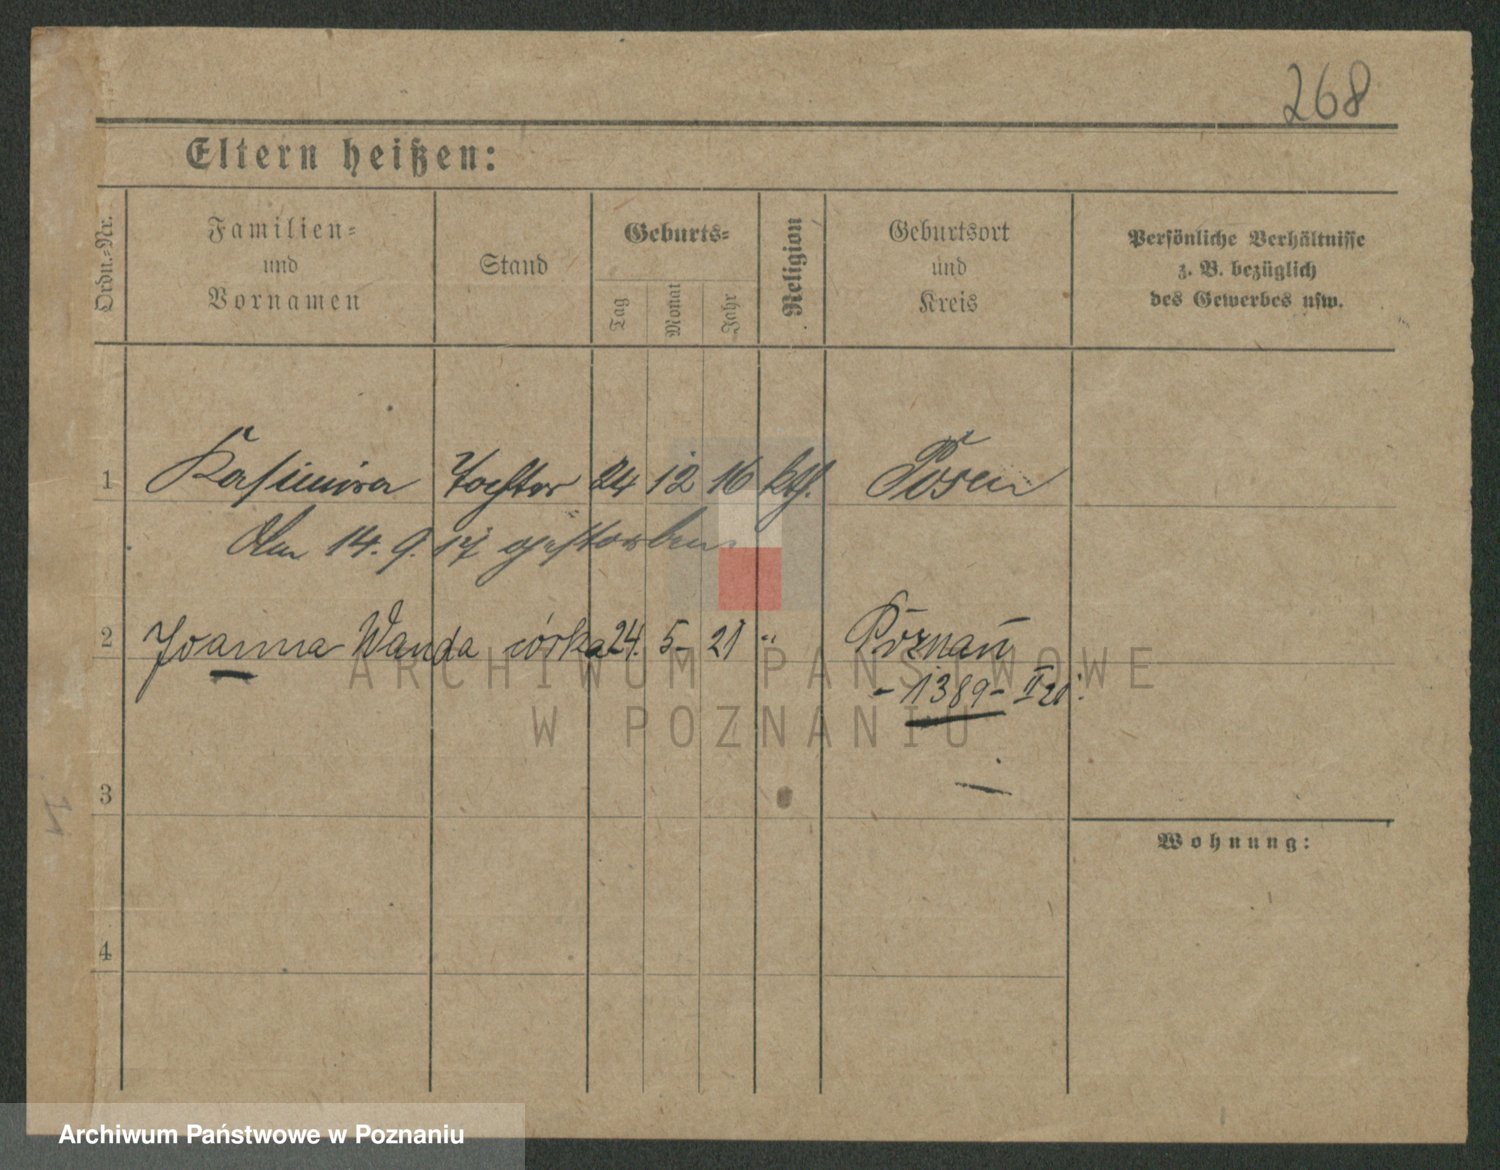 268
Eltern heißen:
Ordn.-Nr.
Familien-
und
Vornamen
Stand
Geburts-
Tag
Monat
Jahr
Religion
Geburtsort
und
Kreis
Persönliche Verhältnisse
z. B. bezüglich
des Gewerbes usw.
1 Kasimira Tochter 24 12 16 kth. Posen
Am 14. 9. 17 gestorben
2 Joanna Wanda córka 24. 5- 21 " Poznań
- 1389 - II 21.
3
Wohnung:
4
ARCHIWUM PAŃSTWOWE
W POZNANIU
Archiwum Państwowe w Poznaniu